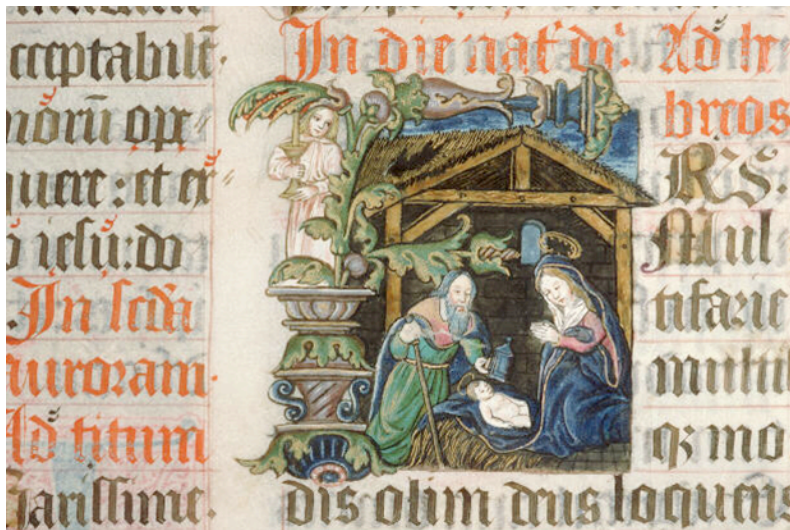 cceptabilē.
norū ope
uere : et ex
iesū: do
In scd̄a
auroram.
Ad titum
Carissime.
In die nat̄ dn̄i. Ad he
breos
FRS.
Mul
tifarie
multi
qꝫ mo
dis olim deus loquens